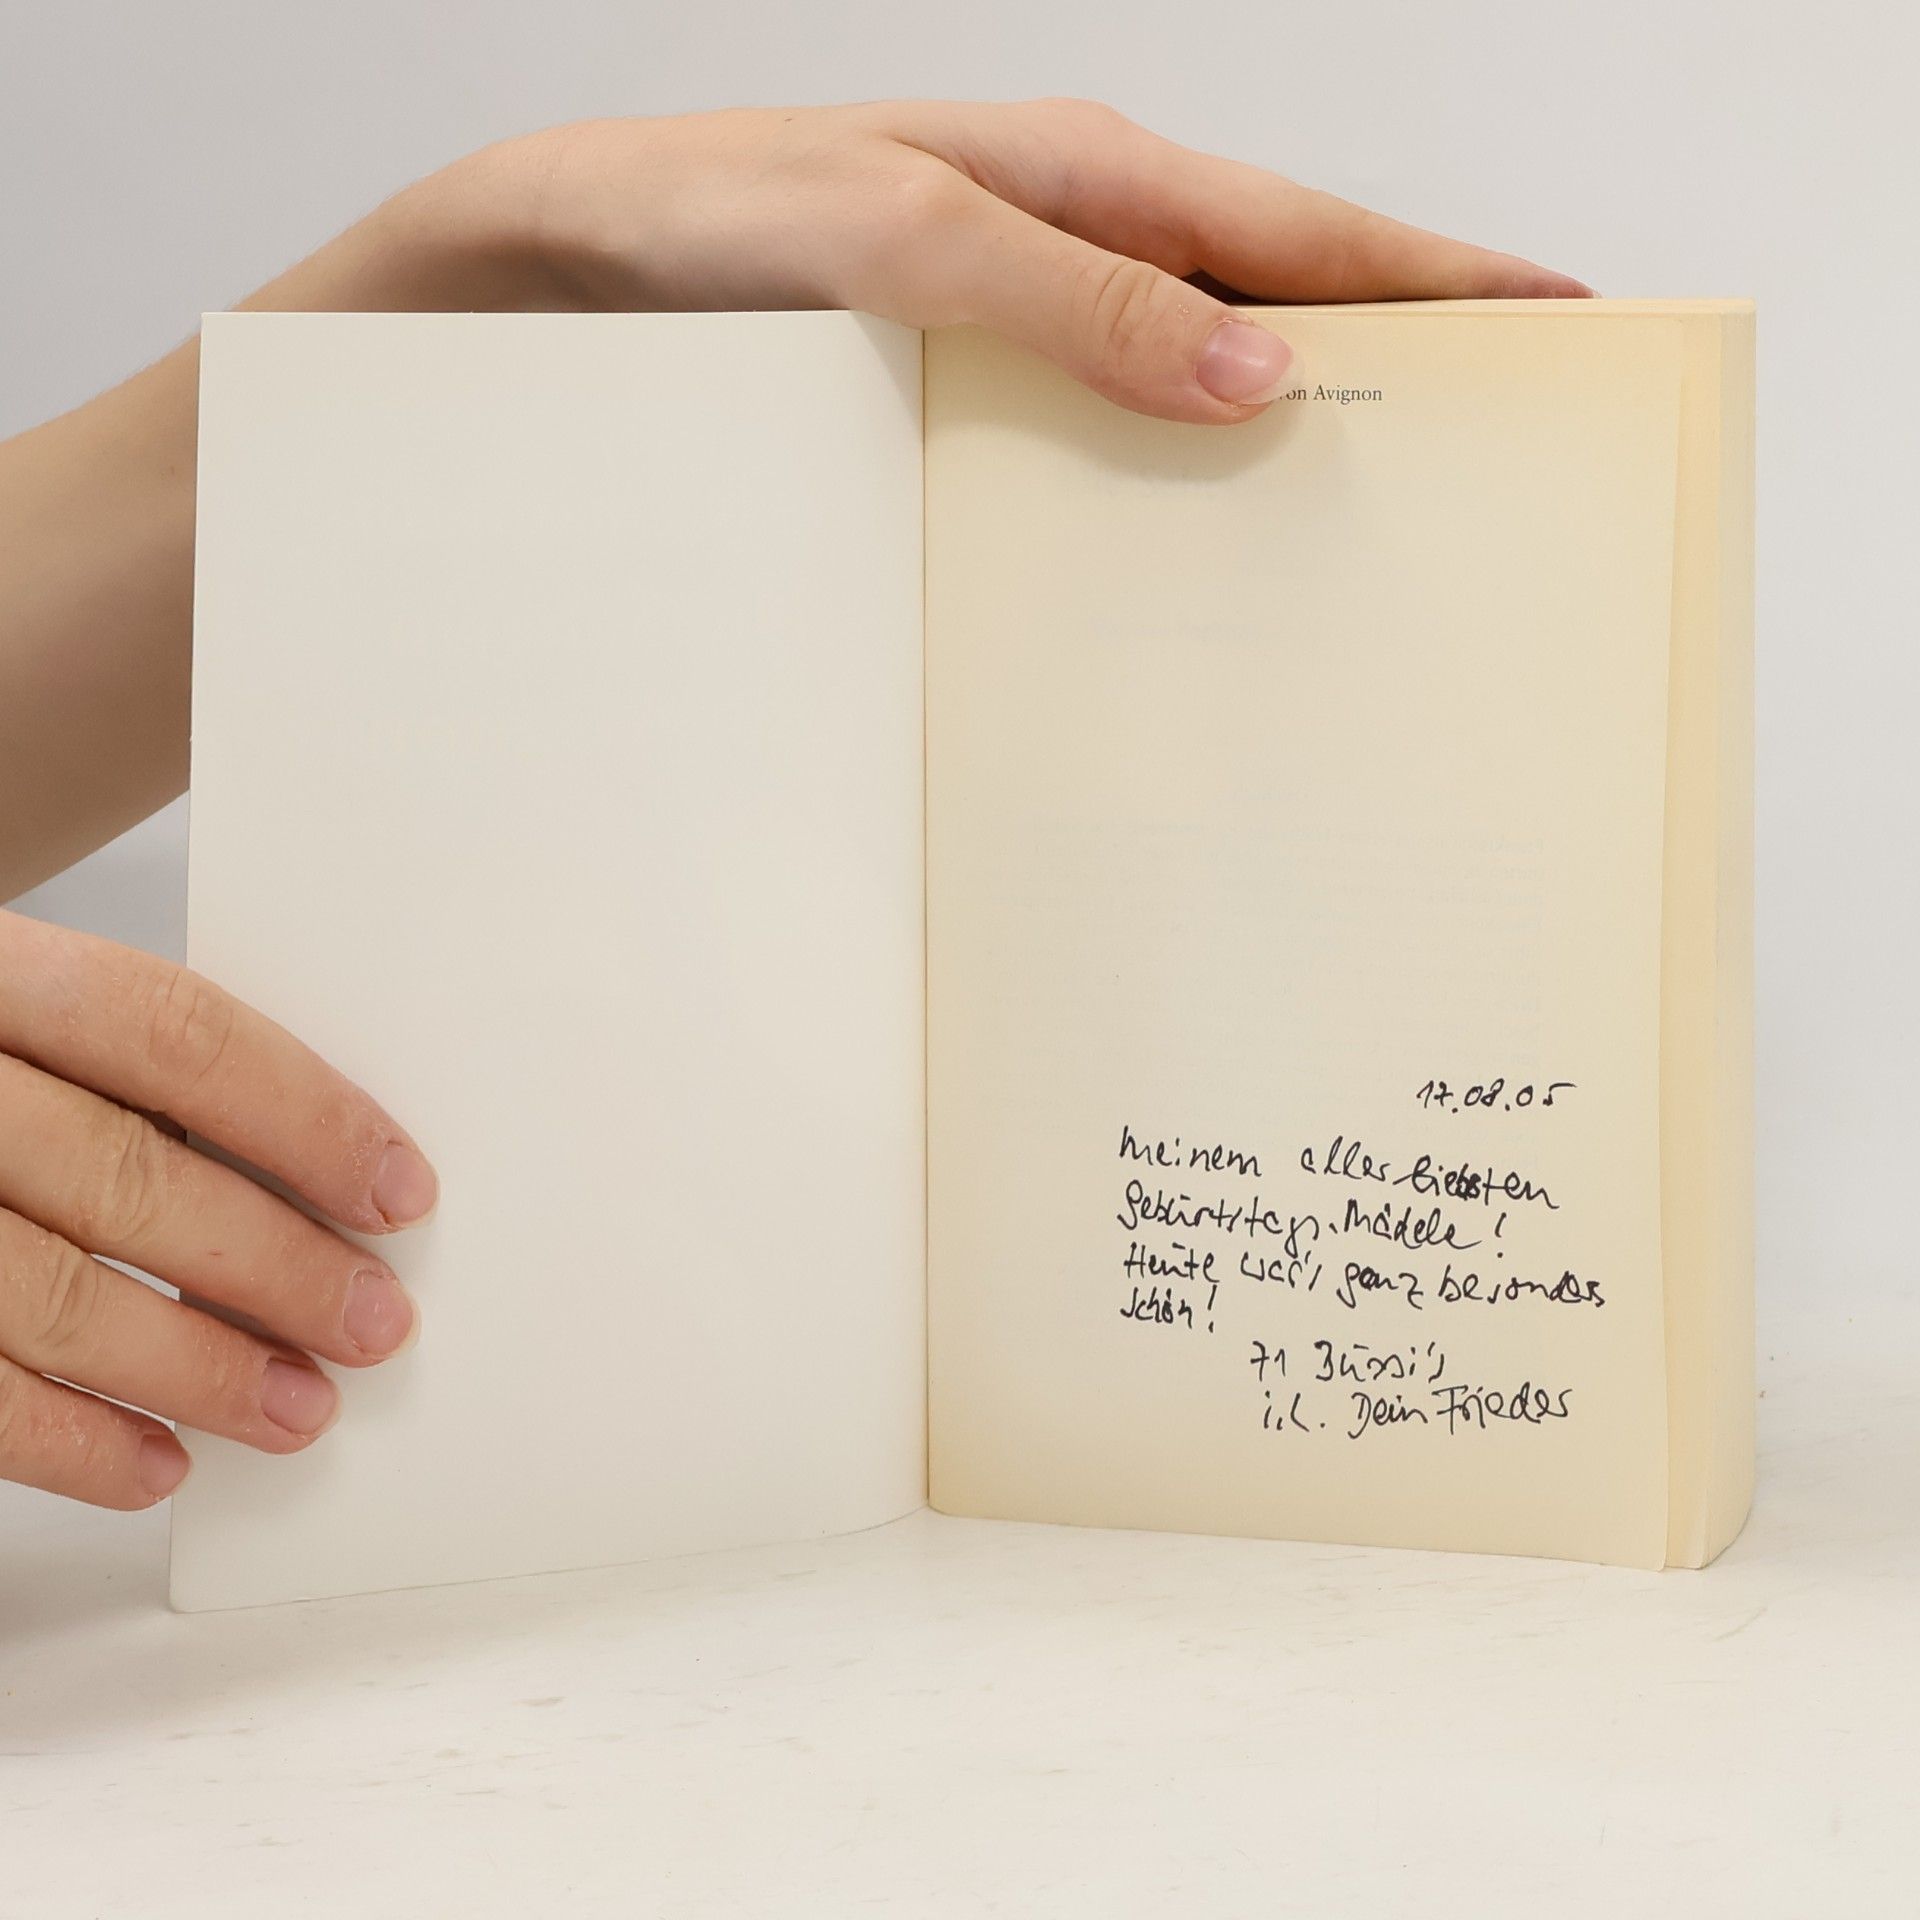 von Avignon
17.08.05
meinem allerliebsten
Geburtstags-Mädele!
Heute war's ganz besonders
schön!
71 Bussi's
i.L. Dein Frieder